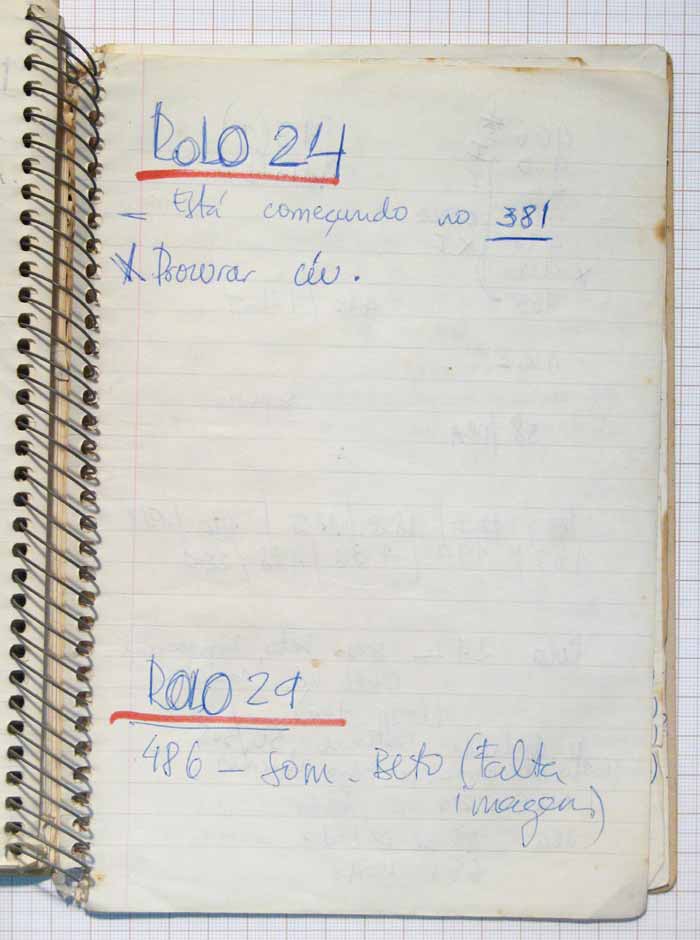 ROLO 24
– Está começando no 381
* Procurar céu.
ROLO 29
486 – Som - Beto (Falta
imagem)